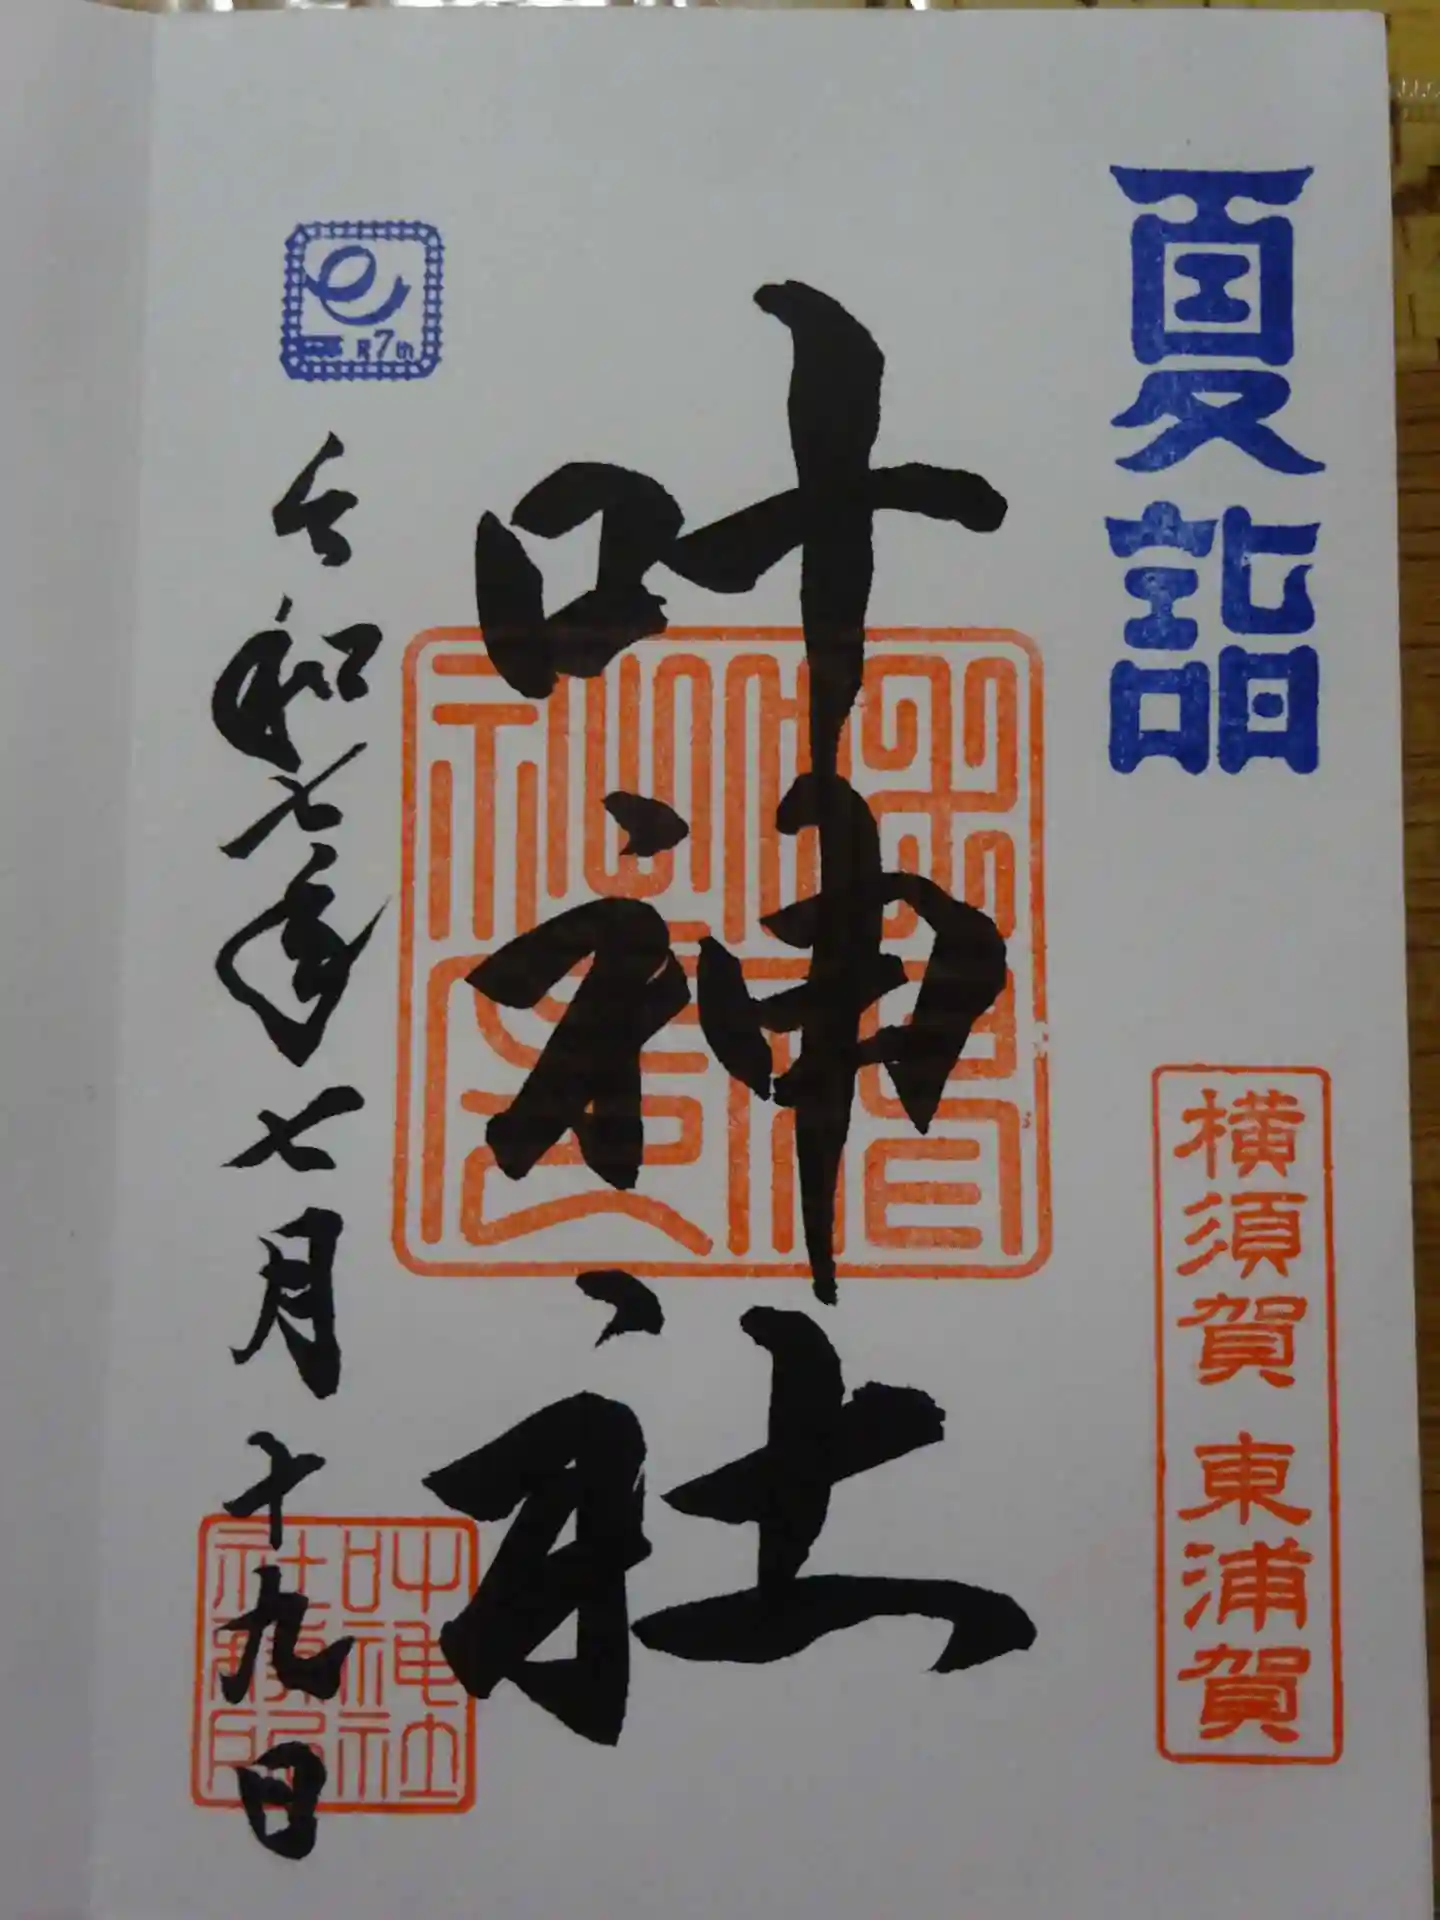 夏詣
横須賀 東浦賀
叶神社
7th
令和七年七月十九日
叶神社
社務所